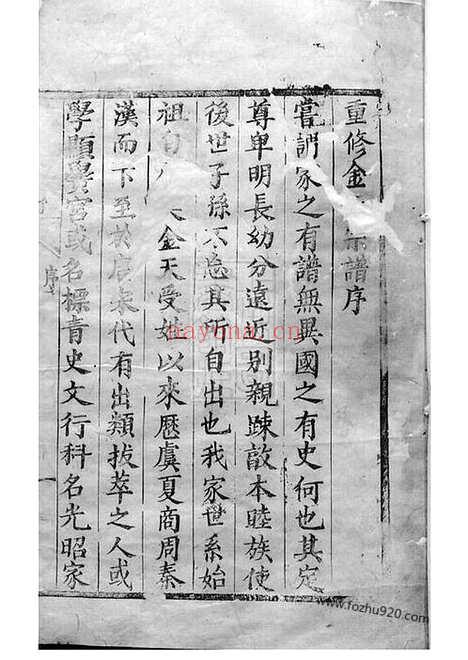 重修金 宗譜序
嘗謂家之有譜無異國之有史何也其定
尊卑明長幼分遠近別親踈敵本睦族使
後世子孫不忘其所自出也我家世系始
祖自 金天受姓以來歷虞夏商周秦
漢而下至於唐宋代有出類拔萃之人或
學顯黌宮或名標青史文行科名光昭家
序
一
haytna.cn
www.fozhu920.com